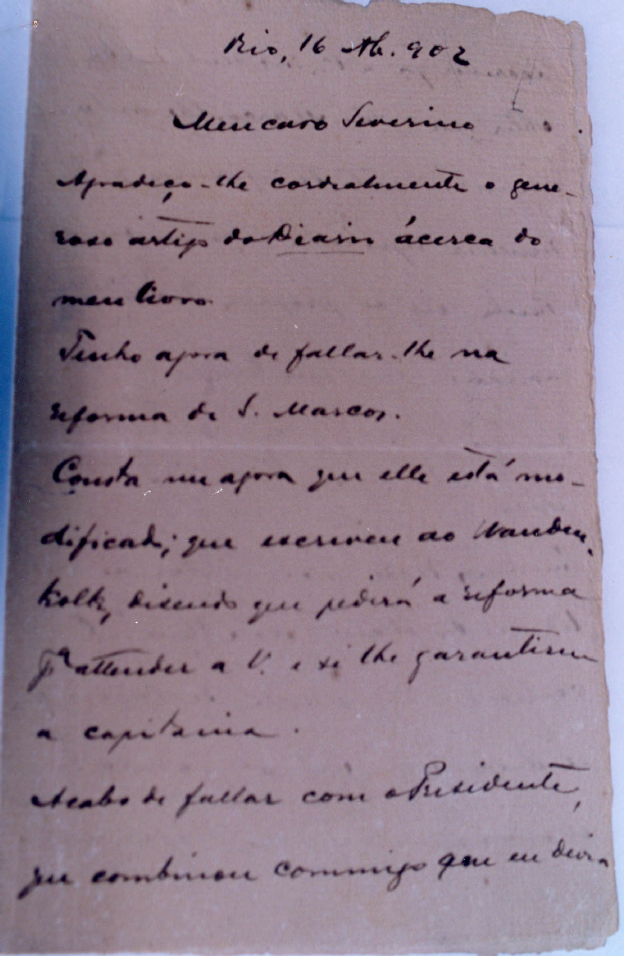 Rio, 16 Ab. 902
Meu caro Severino
Agradeço-lhe cordialmente o gene-
roso artigo do Diario ácerca do
meu livro.
Tenho agora de fallar-lhe na
reforma de S. Marcos.
Consta me agora que elle está mo-
dificado; que escreveu ao Wanden-
kolk, disendo que pedirá a reforma
pª attender a V. e se lhe garantirem
a capitania.
Acabo de fallar com o Presidente,
que combinou commigo que eu